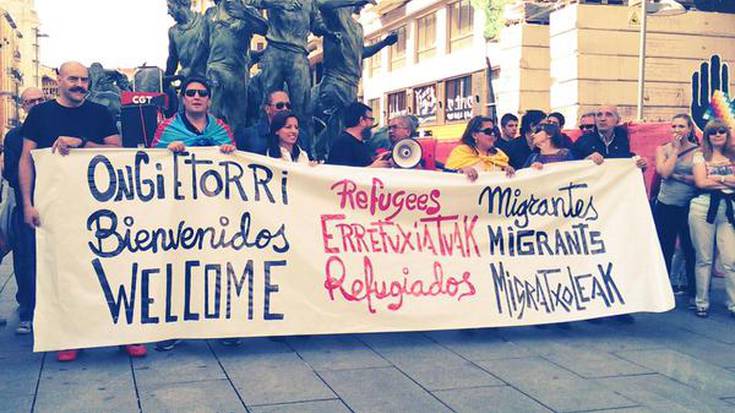 CGT
ONGI ETORRI
BIENVENIDOS
WELCOME
Refugees
ERREFUXIATUAK
Refugiados
Migrantes
MIGRANTS
MIGRATXOLEAK